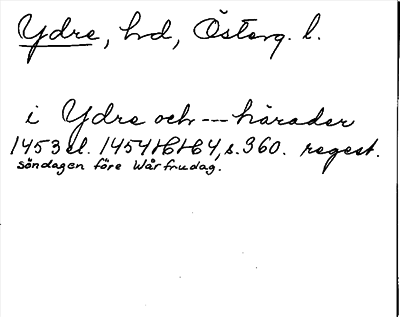 Ydre, hd, Österg. l.
i Ydre och --- härader
1453 el. 1454 HH 4, s. 360. regest.
söndagen före Wårfrudag.